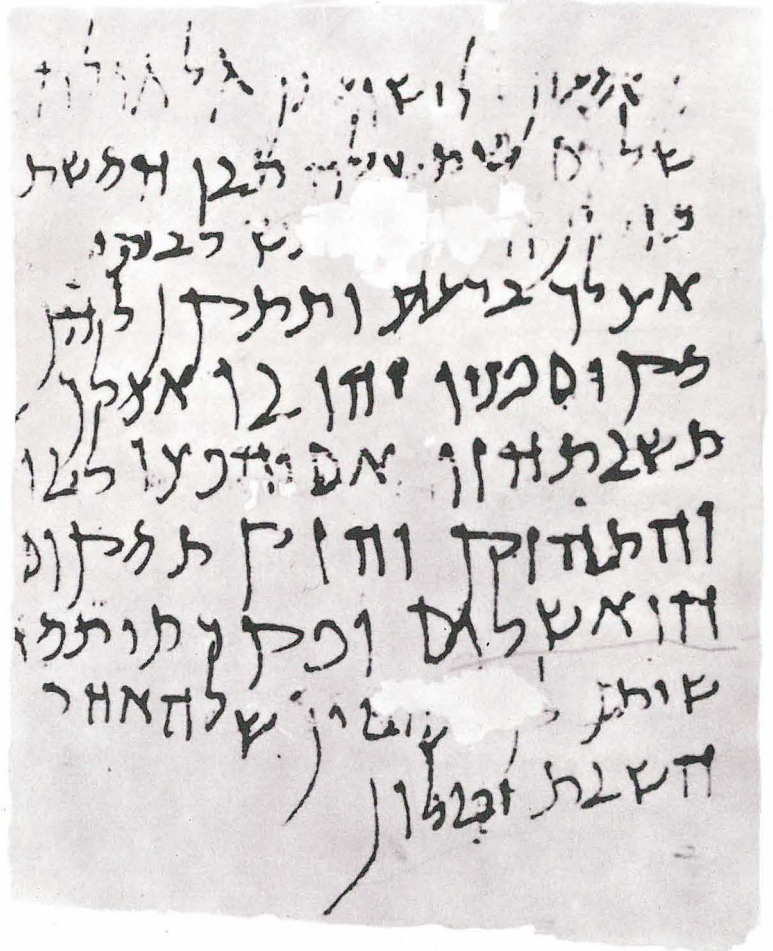 משמעון לישוע בן גלגולה
שלום שתשלח הבו חמשת
כורין
אצלך בדעת ותתקן להן
מקום פנוי יהו בו אצלך
תשבת הזו אם יחפצו לבו
והתחזק וחזק תמקום
הוא שלום ופקדתי תמי
שיתן לך חטין שלה אחר
השבת יטלון